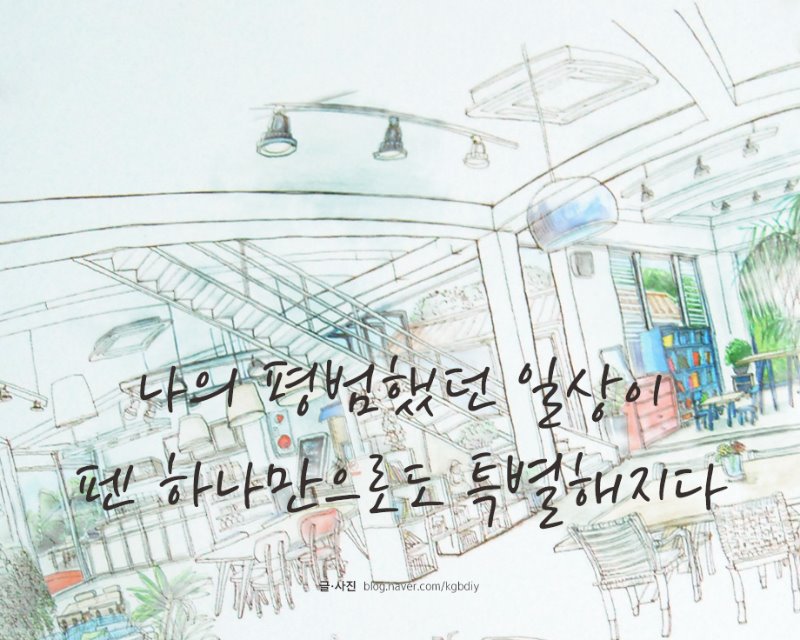 나의 평범했던 일상이
펜 하나만으로도 특별해지다
글·사진 blog.naver.com/kgbdiy